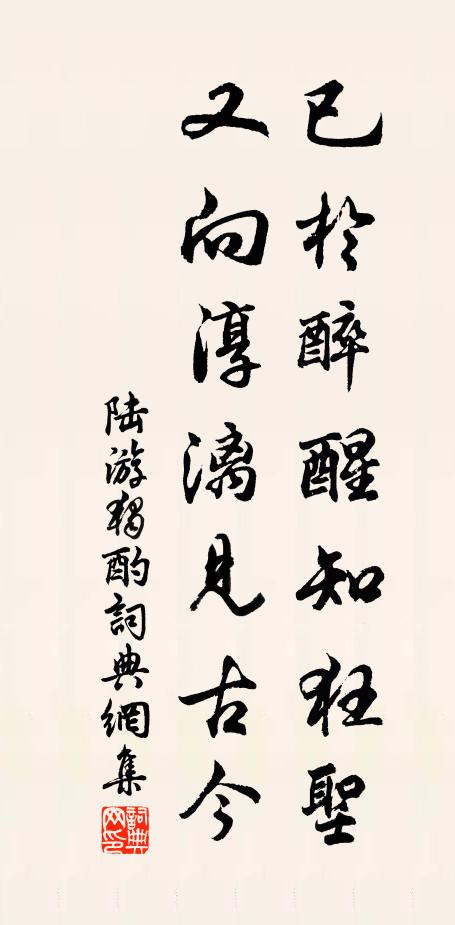 已於醉醒知狂聖
又向淳漓見古今
陆游獨酌詞典網集
詞典网印